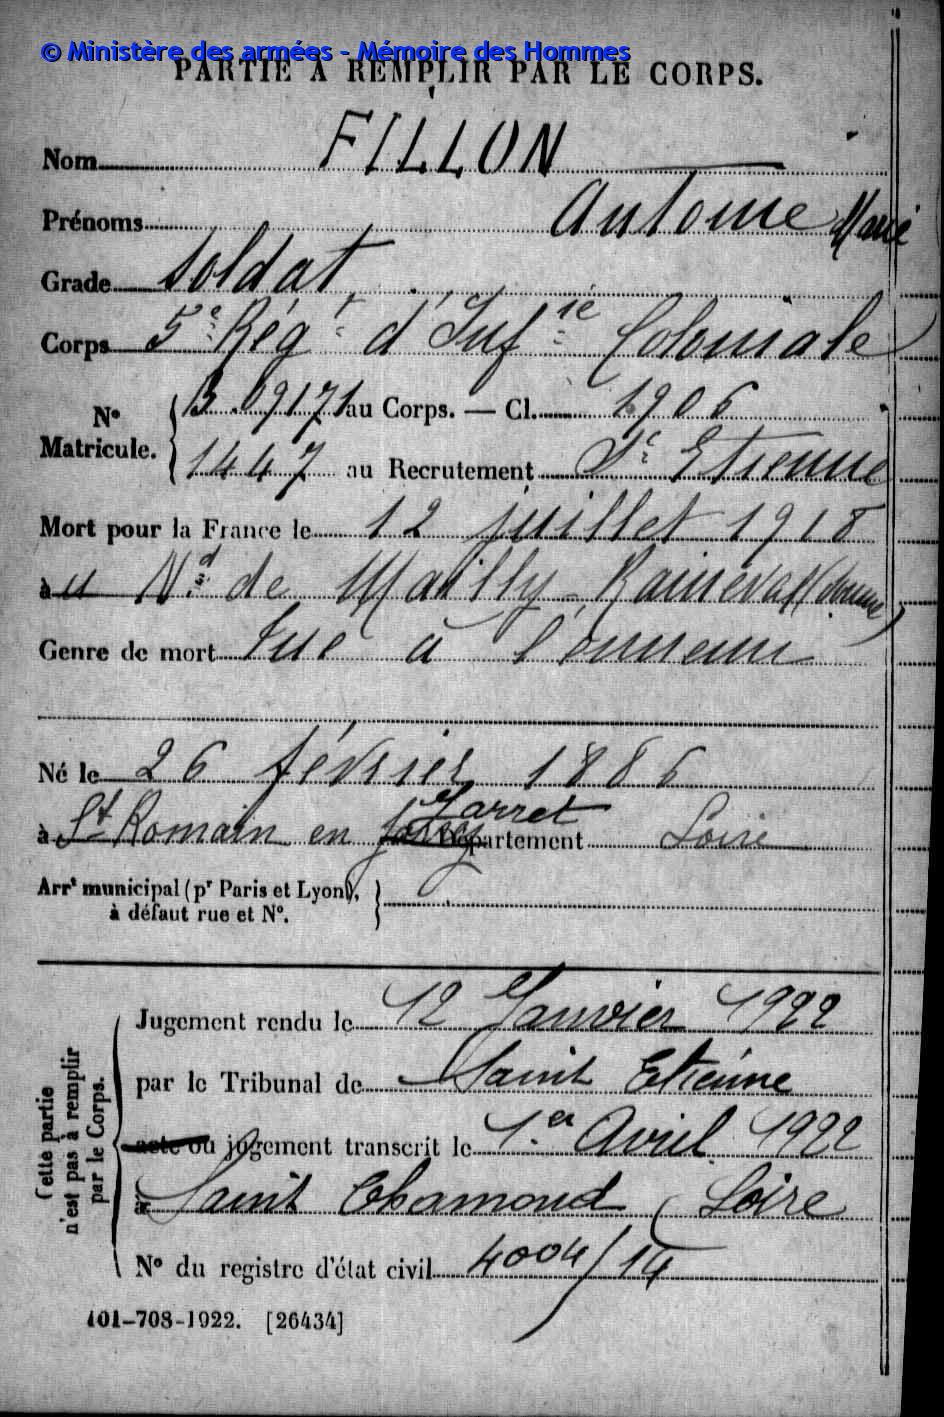 © Ministère des armées - Mémoire des Hommes
PARTIE A REMPLIR PAR LE CORPS.
Nom FILLON
Prénoms Antoine Marie
Grade Soldat
Corps 5e Régt d'Infie Coloniale
No Matricule. { B.09171 au Corps. — Cl. 1906
1447 au Recrutement St Etienne
Mort pour la France le 12 juillet 1918
à u Nd de Mailly-Raineval (Somme)
Genre de mort Tué à l'ennemi
Né le 26 février 1886
à St Romain en Jarret Département Loire
Arrt municipal (pr Paris et Lyon), }
à défaut rue et No.
Cette partie
n'est pas à remplir
par le Corps.
Jugement rendu le 12 Janvier 1922
par le Tribunal de Saint Etienne
acte ou jugement transcrit le 1.er Avril 1922
à Saint Chamond (Loire
No du registre d'état civil 4004/14
101-708-1922. [26434]